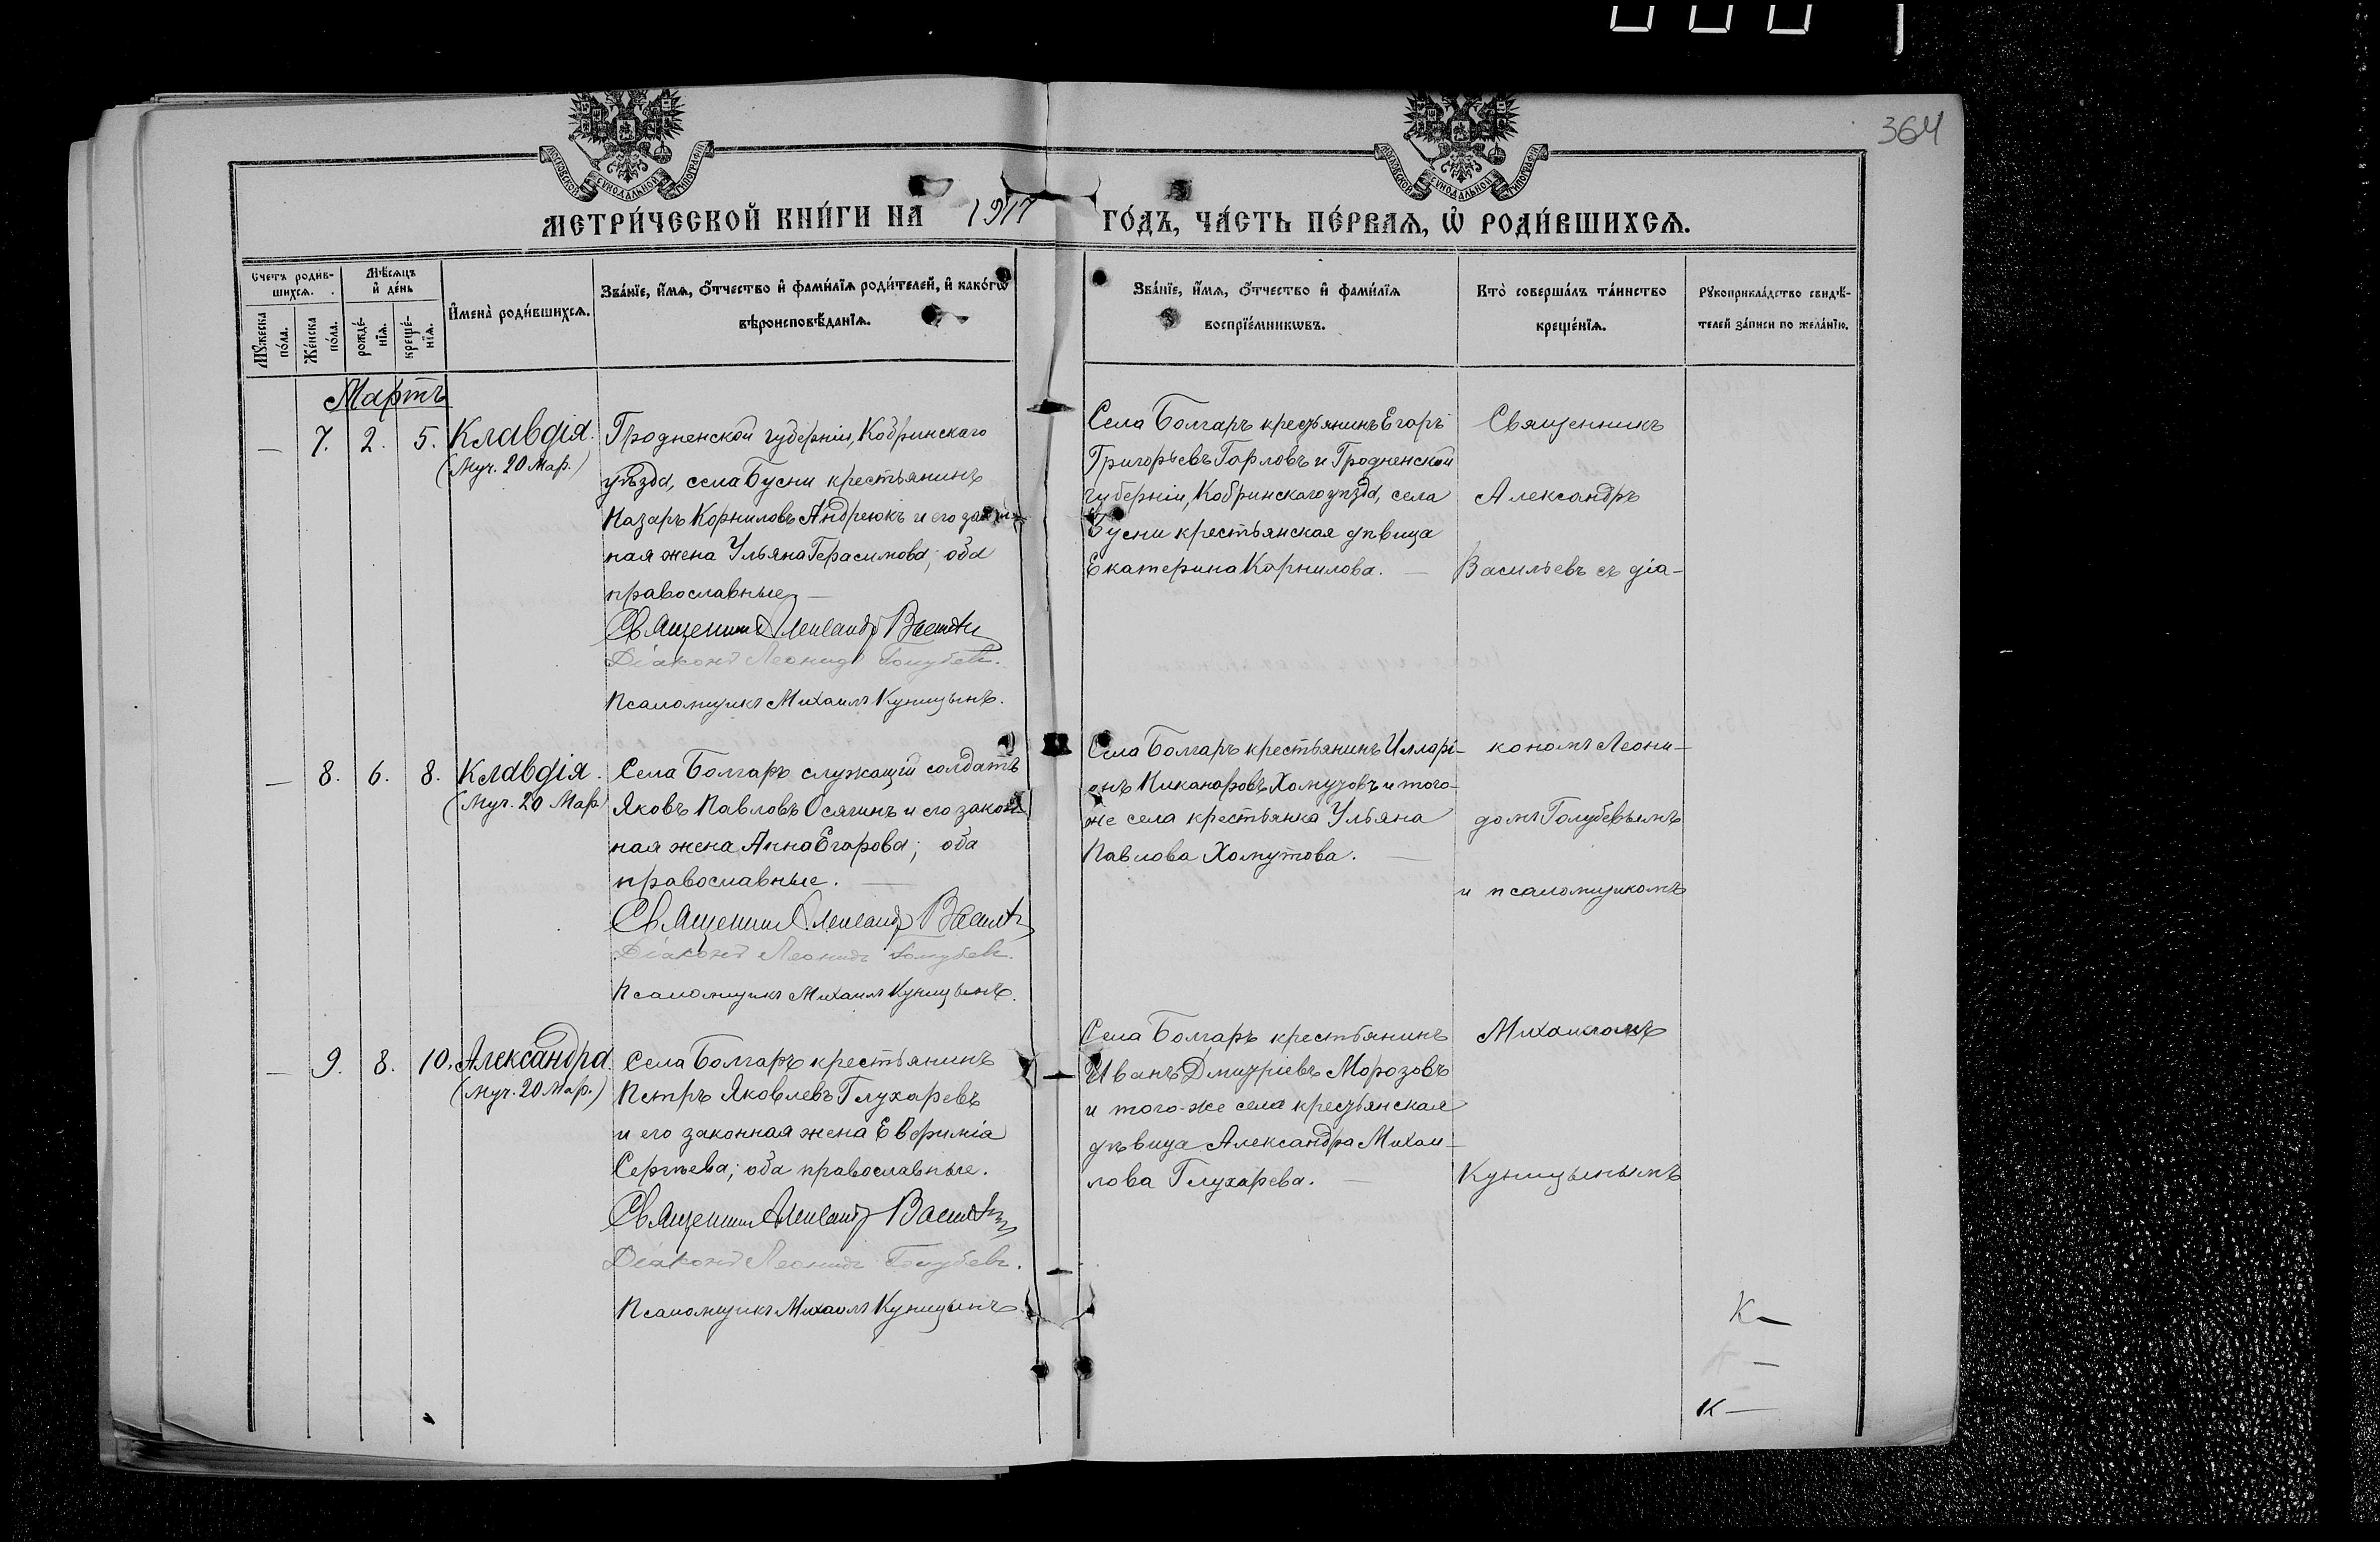 364
МОСКОВСКОЙ СѴНОДАЛЬНОЙ ТИПОГРАФІИ
МОСКОВСКОЙ СѴНОДАЛЬНОЙ ТИПОГРАФІИ
МЕТРИ́ЧЕСКОЙ КНИ́ГИ НА 1917 ГО́ДЪ, ЧА́СТЬ ПЕ́РВАѦ, Ѡ҆ РОДИ́ВШИХСѦ.
Счетъ роди́в-
шихсѧ.
Мѣ́сѧцъ
и҆ де́нь
Мꙋ́жеска
по́ла.
Же́нска
по́ла.
рожде́-
нїѧ.
креще́-
нїѧ.
И҆мена̀ роди́вшихсѧ.
Зва́нїе, и҆́мѧ, ѻ҆́тчество и҆ фами́лїѧ роди́телей, и҆ како́гѡ
вѣроисповѣ́данїѧ.
Зва́нїе, и҆́мѧ, ѻ҆́тчество и҆ фами́лїѧ
воспрїе́мникѡвъ.
Кто̀ соверша́лъ та́инство
креще́нїѧ.
Рꙋкоприкла́дство свидѣ́-
телей за́писи по жела́нїю.
Мартъ
— 7. 2. 5. Клавдія.
(Муч. 20 Мар.)
Гродненской губерніи, Кобринскаго
уѣзда, села Бусни крестьянинъ
Назаръ Корниловъ Андреюкъ и его закон-
ная жена Ульяна Герасимова; оба
православные. —
Священникъ Александръ Васильевъ
Діаконъ Леонидъ Голубевъ.
Псаломщикъ Михаилъ Куницынъ.
Села Болгаръ крестьянинъ Егоръ
Григорьевъ Горловъ и Гродненской
губерніи, Кобринскаго уѣзда, села
Бусни крестьянская дѣвица
Екатерина Корнилова. —
Священникъ
Александръ
Васильевъ съ діа-
— 8. 6. 8. Клавдія.
(Муч. 20 Мар.)
Села Болгаръ служащій солдатъ
Яковъ Павловъ Осягинъ и его закон-
ная жена Анна Егорова; оба
православные. —
Священникъ Александръ Васильевъ
Діаконъ Леонидъ Голубевъ.
Псаломщикъ Михаилъ Куницынъ.
Села Болгаръ крестьянинъ Илларі-
онъ Никаноровъ Хомутовъ и того-
же села крестьянка Ульяна
Павлова Хомутова. —
кономъ Леони-
домъ Голубевымъ
и псаломщикомъ
— 9. 8. 10. Александра.
(Муч. 20 Мар.)
Села Болгаръ крестьянинъ
Петръ Яковлевъ Глухаревъ
и его законная жена Евфимія
Сергѣева; оба православные.
Священникъ Александръ Васильевъ
Діаконъ Леонидъ Голубевъ.
Псаломщикъ Михаилъ Куницынъ
Села Болгаръ крестьянинъ
Иванъ Дмитріевъ Морозовъ
и того-же села крестьянская
дѣвица Александра Михаи-
лова Глухарева. —
Михаиломъ
Куницынымъ
К—
К—